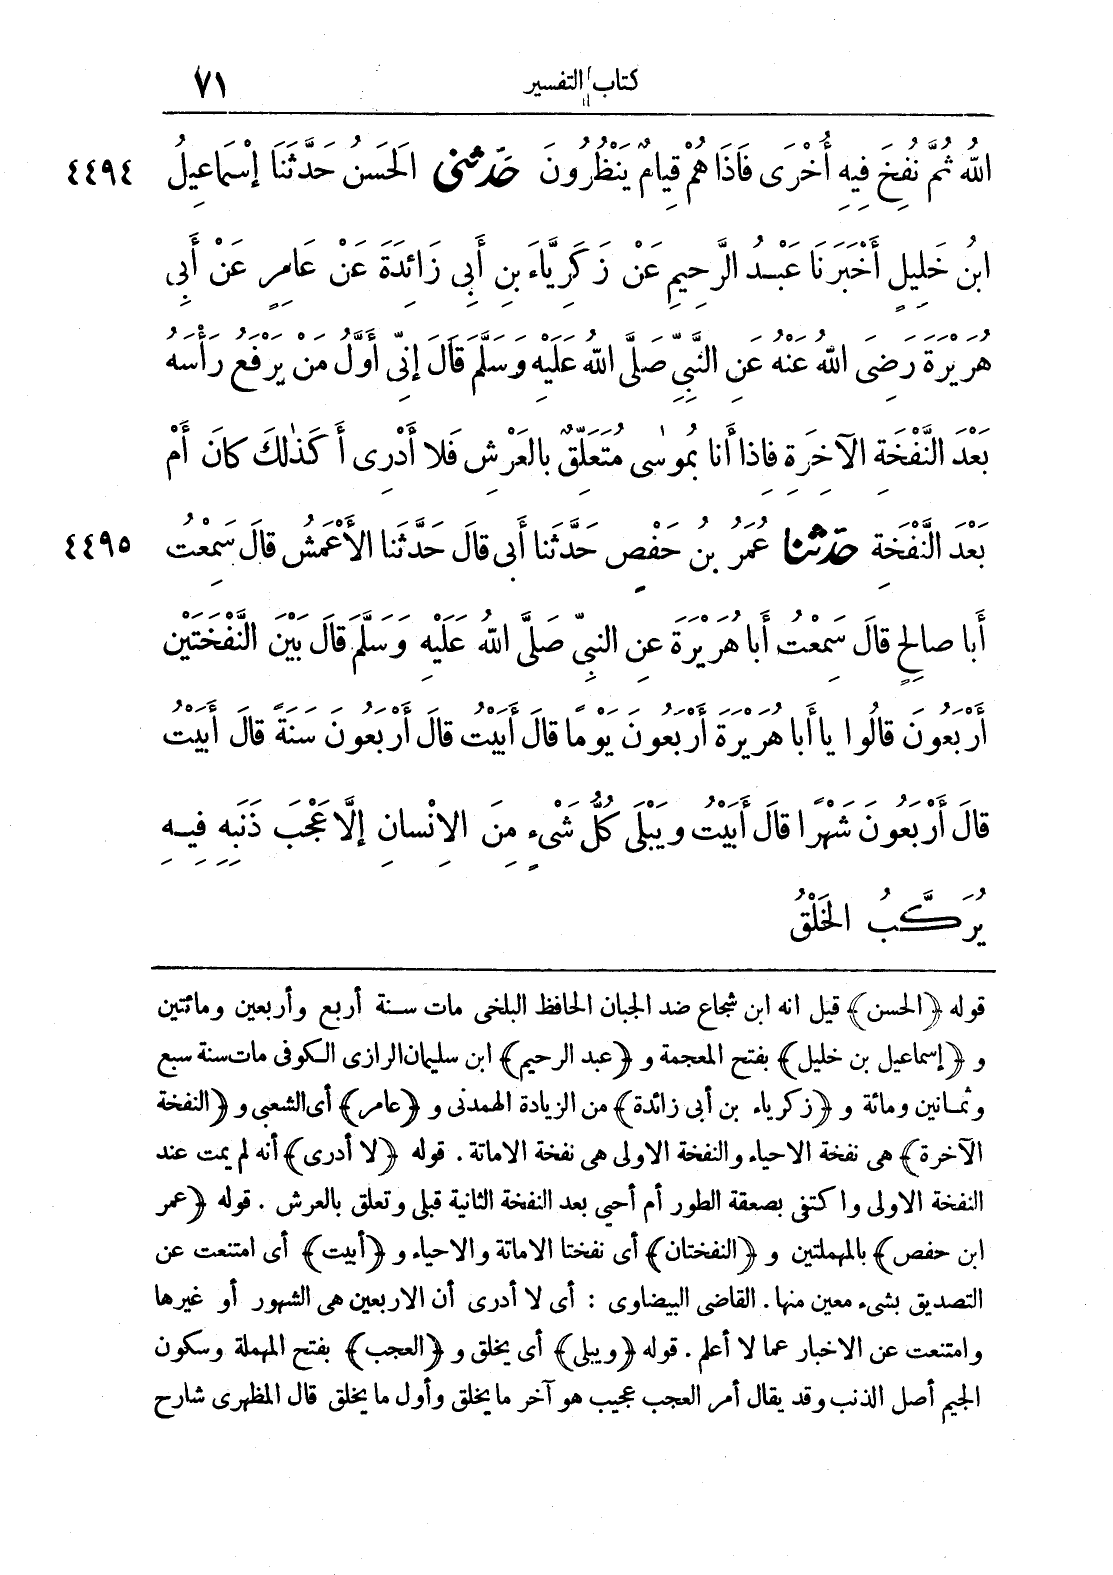 كتاب التفسير ٧١
اللهُ ثُمَّ نُفِخَ فِيهِ أُخْرَى فَاذَا هُمْ قِيامٌ يَنْظُرُونَ حَدَّثَنى الحَسَنُ حَدَّثَنَا إسْمَاعِيلُ ٤٤٩٤
ابنُ خَلِيلٍ أَخْبَرَنَا عَبْدُ الرَّحِيمِ عَنْ زَكَرِيَّاءَ بنِ أَبِى زَائِدَةَ عَنْ عَامِرٍ عَنْ أَبِى
هُرَيْرَةَ رَضِىَ اللهُ عَنْهُ عَنِ النَّبِىِّ صَلَّى اللهُ عَلَيْهِ وَسَلَّمَ قَالَ إنِّى أَوَّلُ مَنْ يَرْفَعُ رَأْسَهُ
بَعْدَ النَّفْخَةِ الآخِرَةِ فاذا أَنا بمُوسٰى مُتَعَلِّقٌ بالعَرْشِ فَلا أَدْرِى أَ كَذٰلكَ كانَ أَمْ
بَعْدَ النَّفْخَةِ حَدَّثَنا عُمَرُ بنُ حَفْصٍ حَدَّثَنا أَبِى قالَ حَدَّثَنا الأَعْمَشُ قالَ سَمِعْتُ ٤٤٩٥
أَبا صالِحٍ قالَ سَمِعْتُ أَبا هُرَيْرَةَ عنِ النبِىِّ صَلَّى اللهُ عَلَيْهِ وَسَلَّمَ قالَ بَيْنَ النَّفْخَتَيْنِ
أَرْبَعُونَ قالُوا يا أَبا هُرَيْرَةَ أَرْبَعُونَ يَوْمًا قالَ أَبَيْتُ قالَ أَرْبَعُونَ سَنَةً قالَ أَبَيْتُ
قالَ أَرْبَعُونَ شَهْرًا قالَ أَبَيْتُ ويَبْلَى كُلُّ شَىْءٍ مِنَ الإنْسانِ إلَّا عَجْبَ ذَنَبِهِ فِيهِ
يُرَكَّبُ الخَلْقُ
قوله ﴿الحسن﴾ قيل انه ابن شجاع ضد الجبان الحافظ البلخى مات سنة أربع وأربعين ومائتين
و ﴿إسماعيل بن خليل﴾ بفتح المعجمة و ﴿عبد الرحيم﴾ ابن سليمان الرازى الكوفى مات سنة سبع
وثمانين ومائة و ﴿زكرياء بن أبى زائدة﴾ من الزيادة الهمدنى و ﴿عامر﴾ أى الشعبى و ﴿النفخة
الآخرة﴾ هى نفخة الاحياء والنفخة الاولى هى نفخة الاماتة . قوله ﴿لا أدرى﴾ أنه لم يمت عند
النفخة الاولى واكتفى بصعقة الطور أم أحيى بعد النفخة الثانية قبلى وتعلق بالعرش . قوله ﴿عمر
ابن حفص﴾ بالمهملتين و ﴿النفختان﴾ أى نفختا الاماتة والاحياء و ﴿أبيت﴾ أى امتنعت عن
التصديق بشىء معين منها . القاضى البيضاوى : أى لا أدرى أن الاربعين هى الشهور أو غيرها
وامتنعت عن الاخبار عما لا أعلم . قوله ﴿ويبلى﴾ أى يخلق و ﴿العجب﴾ بفتح المهملة وسكون
الجيم أصل الذنب وقد يقال أمر العجب عجيب هو آخر ما يخلق وأول ما يخلق قال المظهرى شارح